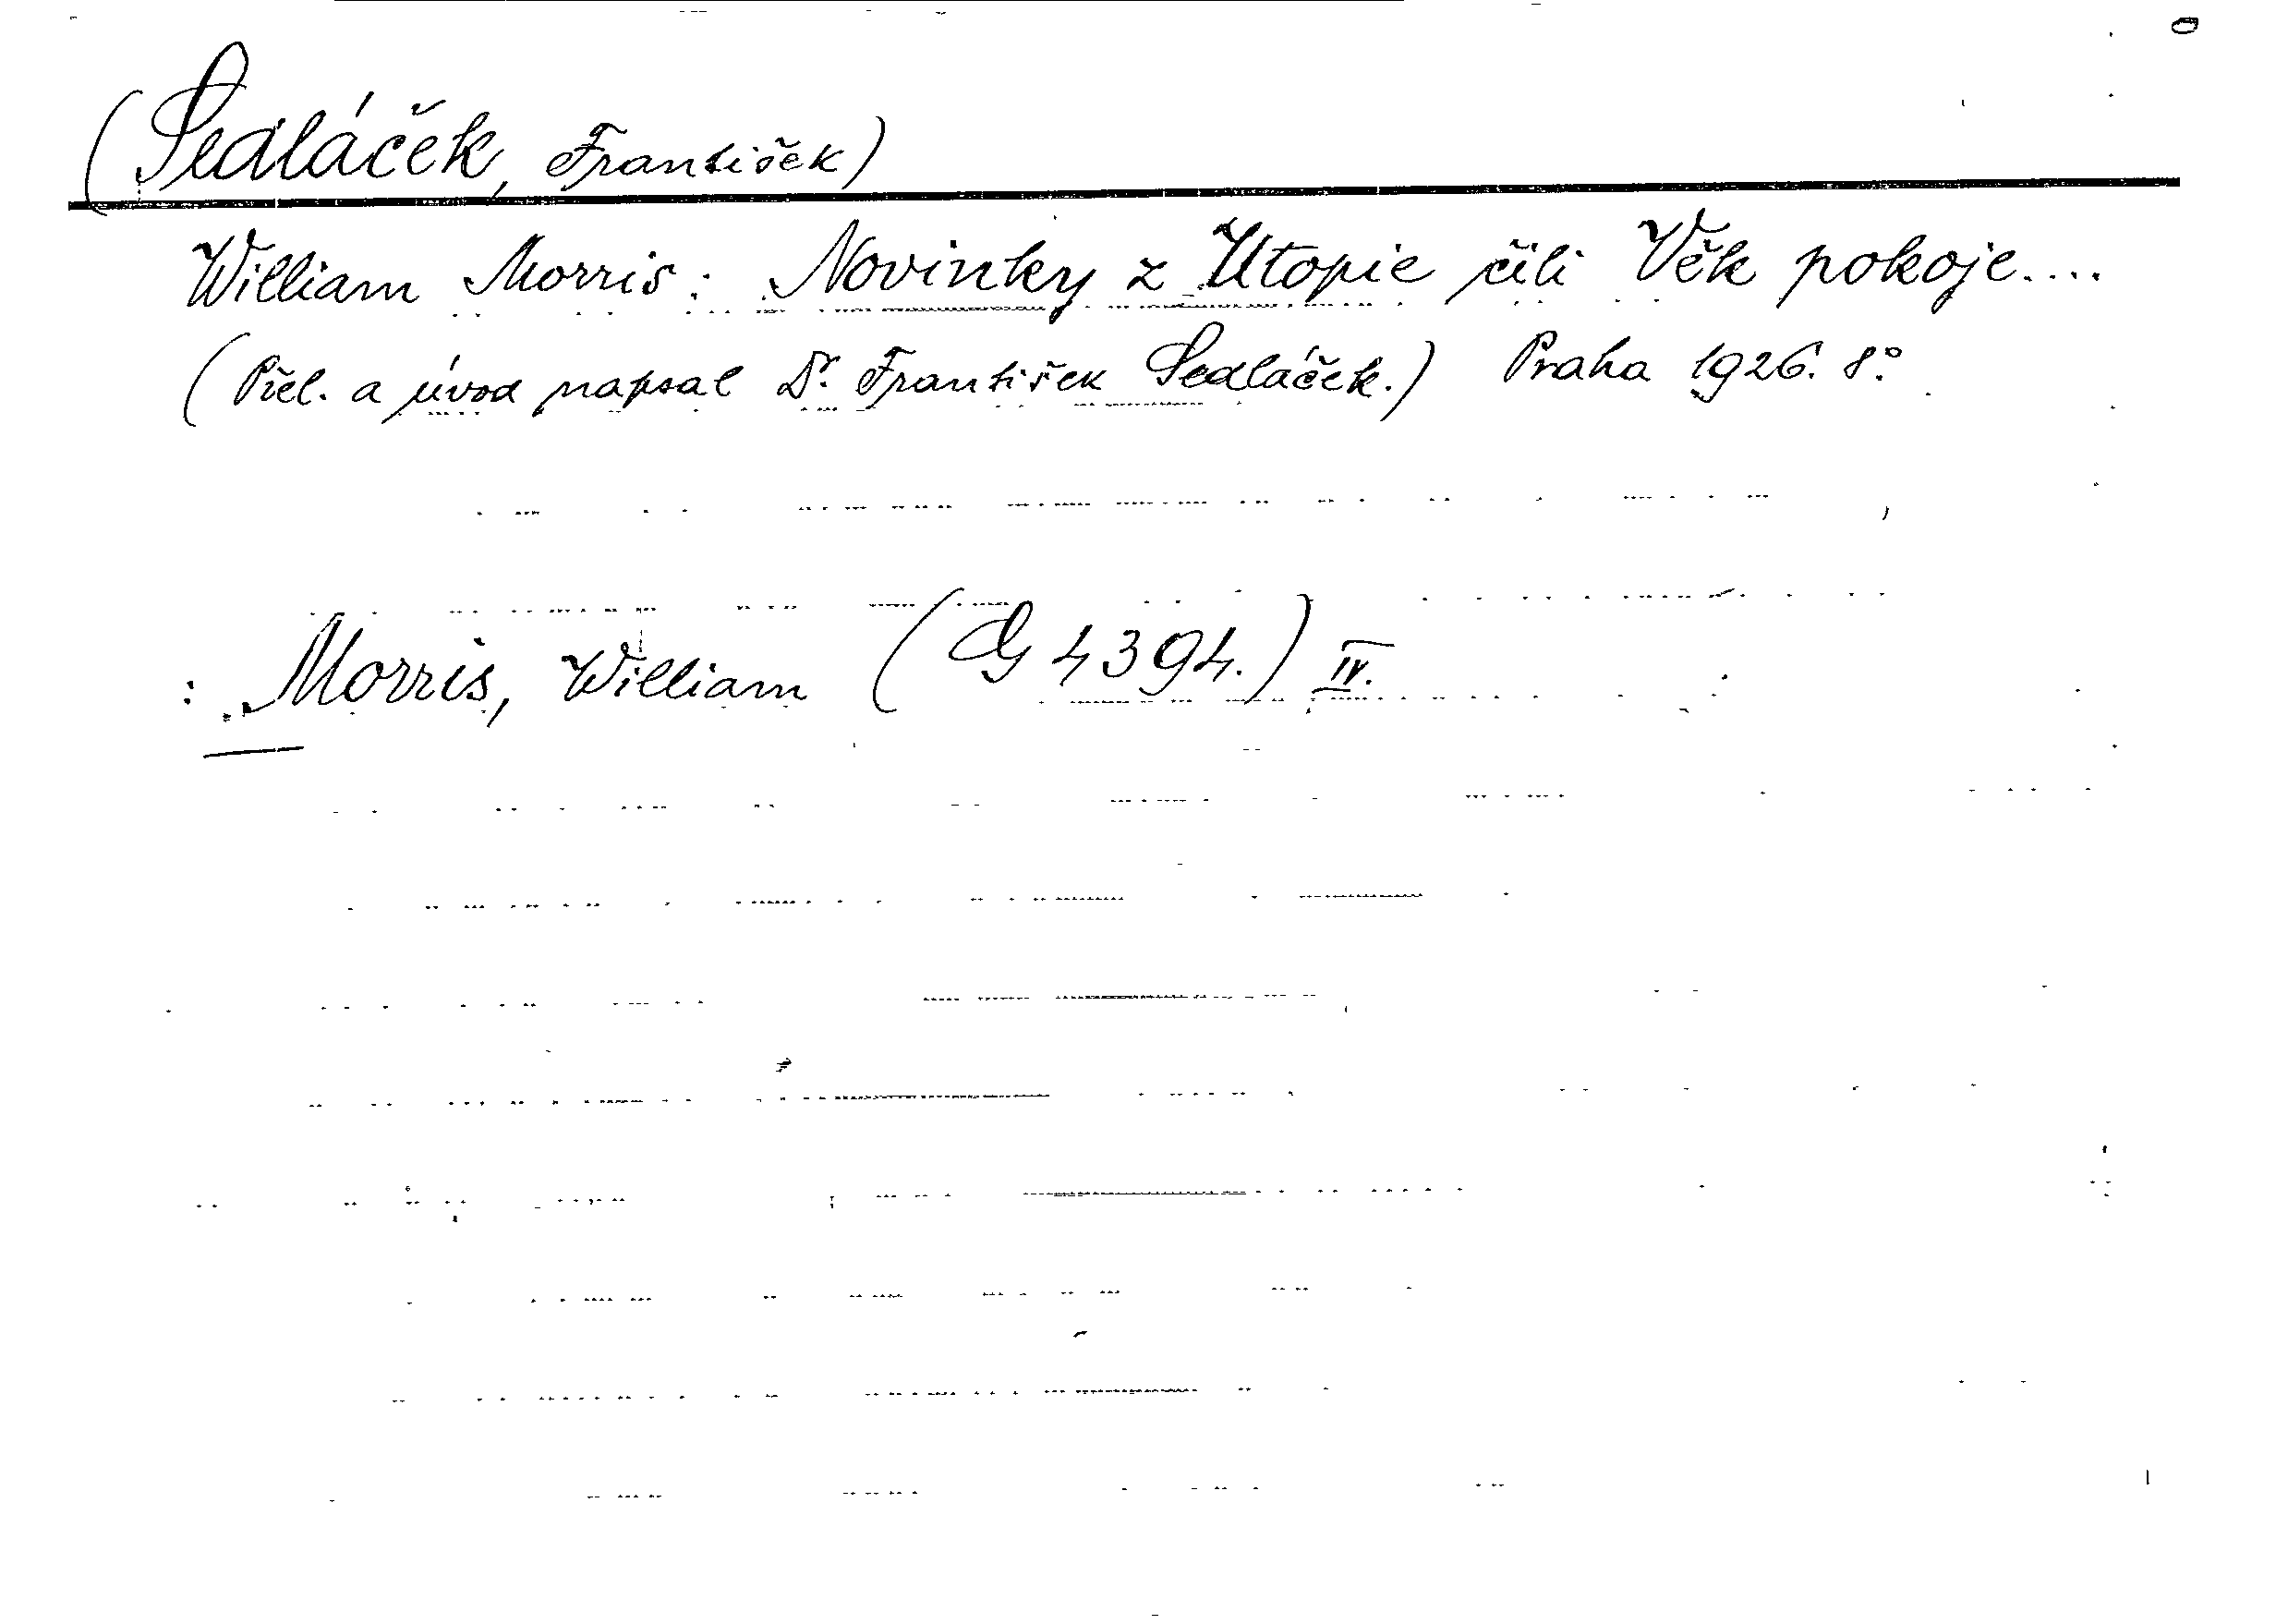 (Sedláček, František)
William Morris: Novinky z Utopie čili Věk pokoje....
(Přel. a úvod napsal Dr. František Sedláček.) Praha 1926. 8°.
: Morris, William (G 4394.) IV.